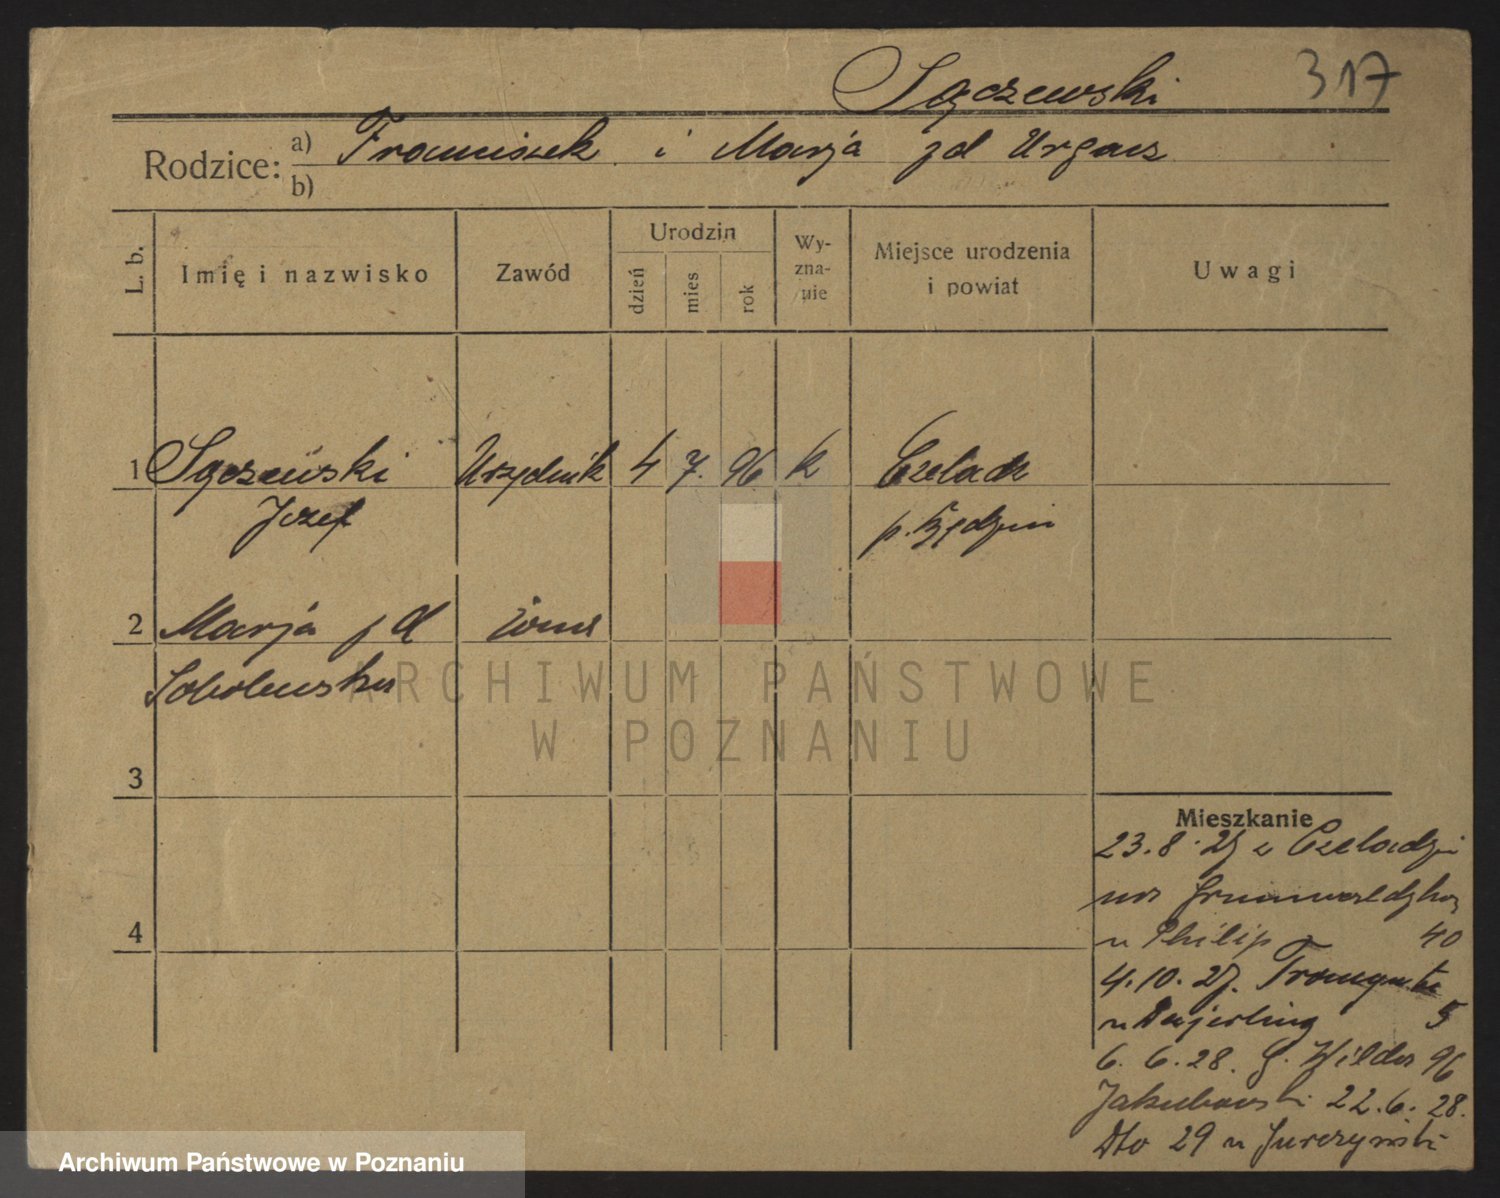 Sączewski 317
Rodzice: a) Franciszek i Marja zd Urgacz
b)
L. b. Imię i nazwisko Zawód Urodzin dzień mies rok Wyznanie Miejsce urodzenia i powiat Uwagi
1 Sączewski Urzędnik 4 7. 96 k Czeladz
Józef p. Będzin
2 Marja zd żona
Sobolewska
3
4
Mieszkanie
23.8.27 z Czeladzi
na Grunwaldzką
u Philip 40
4.10.27.
u 5
6. 6.28. G. Wilda 96
Jakubowski 22.6.28.
Dto 29 u Jurczyński
ARCHIWUM PAŃSTWOWE
W POZNANIU
Archiwum Państwowe w Poznaniu